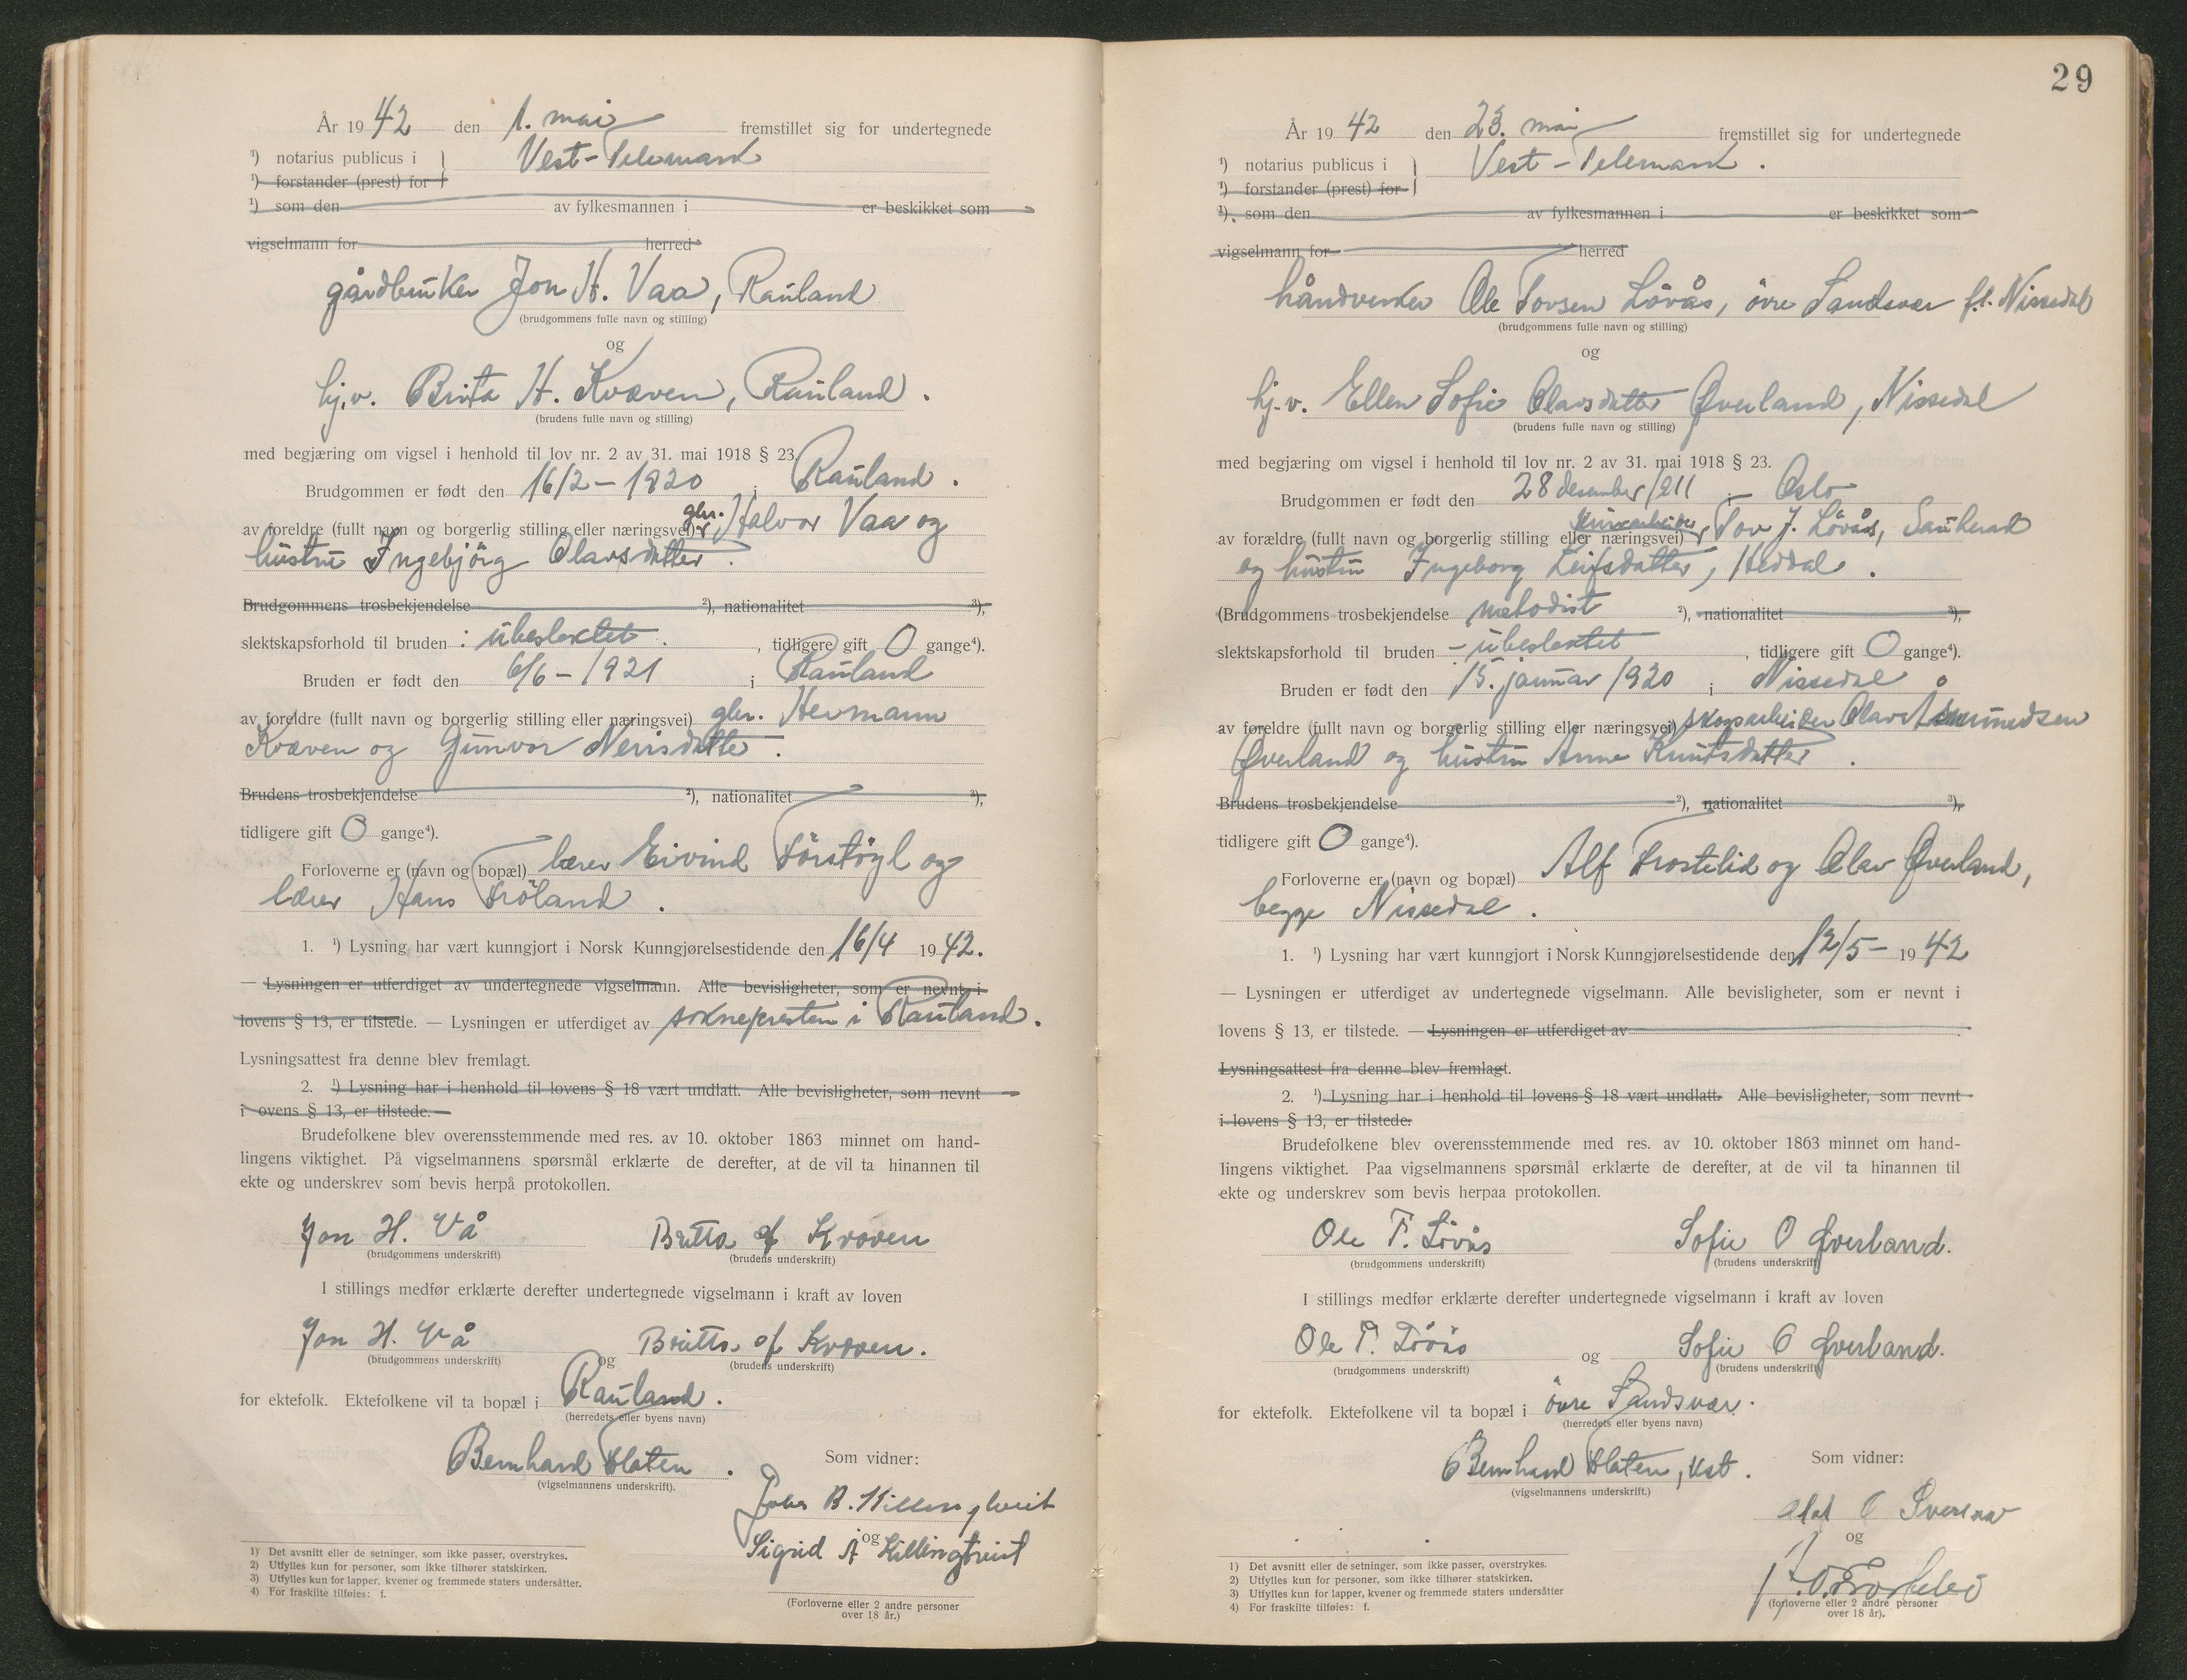 År 1942 den 1. mai fremstillet sig for undertegnede
¹) notarius publicus i } Vest-Telemark
¹) forstander (prest) for
¹) som den av fylkesmannen i er beskikket som
vigselmann for herred
gårdbruker Jon H. Vaa, Rauland
(brudgommens fulle navn og stilling)
og
hj.v. Brita H. Kvæven, Rauland.
(brudens fulle navn og stilling)
med begjæring om vigsel i henhold til lov nr. 2 av 31. mai 1918 § 23.
Brudgommen er født den 16/2 - 1920 i Rauland.
av foreldre (fullt navn og borgerlig stilling eller næringsvei) gbr. Halvor Vaa og
hustru Ingebjörg Olavsdatter.
Brudgommens trosbekjendelse ²), nationalitet ³),
slektskapsforhold til bruden : ubeslektet. , tidligere gift 0 gange⁴).
Bruden er født den 6/6 - 1921 i Rauland
av foreldre (fullt navn og borgerlig stilling eller næringsvei) gbr. Hermann
Kvæven og Gunvor Nerisdatter.
Brudens trosbekjendelse ²), nationalitet ³),
tidligere gift 0 gange⁴).
Forloverne er (navn og bopæl) lærer Eivind og
lærer Hans Fröland.
1. ¹) Lysning har vært kunngjort i Norsk Kunngjørelsestidende den 16/4 1942.
— Lysningen er utferdiget av undertegnede vigselmann. Alle bevisligheter, som er nevnt i
lovens § 13, er tilstede. — Lysningen er utferdiget av soknepresten i Rauland.
Lysningsattest fra denne blev fremlagt.
2. ¹) Lysning har i henhold til lovens § 18 vært undlatt. Alle bevisligheter, som nevnt
i ovens § 13, er tilstede.
Brudefolkene blev overensstemmende med res. av 10. oktober 1863 minnet om hand-
lingens viktighet. På vigselmannens spørsmål erklærte de derefter, at de vil ta hinannen til
ekte og underskrev som bevis herpå protokollen.
Jon H. Vå Britta H Kvæven
(brudgommens underskrift) (brudens underskrift)
I stillings medfør erklærte derefter undertegnede vigselmann i kraft av loven
Jon H. Vå og Britta H Kvæven.
(brudgommens underskrift) (brudens underskrift)
for ektefolk. Ektefolkene vil ta bopæl i Rauland.
(herredets eller byens navn)
Bernhard Flaten.
(vigselmannens underskrift).
Som vidner:
B. Killingtveit
og
Sigrid A Killingtveit
(Forloverne eller 2 andre personer
over 18 år.)
1) Det avsnitt eller de setninger, som ikke passer, overstrykes.
2) Utfylles kun for personer, som ikke tilhører statskirken.
3) Utfylles kun for lapper, kvener og fremmede staters undersåtter.
4) For fraskilte tilføies: f.
29
År 1942 den 23. mai fremstillet sig for undertegnede
¹) notarius publicus i } Vest-Telemark.
¹) forstander (prest) for
¹) som den av fylkesmannen i er beskikket som
vigselmann for herred
håndverker Ole Tovsen Lövås, övre Sandsvær f.t. Nissedal
(brudgommens fulle navn og stilling)
og
hj.v. Ellen Sofie Olavsdatter Øverland, Nissedal
(brudens fulle navn og stilling)
med begjæring om vigsel i henhold til lov nr. 2 av 31. mai 1918 § 23.
Brudgommen er født den 28 desember 1911 i Oslo
av forældre (fullt navn og borgerlig stilling eller næringsvei) Tov J. Lövås, Sauherad
og hustru Ingeborg Leifsdatter, Heddal.
(Brudgommens trosbekjendelse metodist ²), nationalitet ³),
slektskapsforhold til bruden - ubeslektet , tidligere gift 0 gange⁴).
Bruden er født den 15. januar 1920 i Nissedal
av foreldre (fullt navn og borgerlig stilling eller næringsvei) skogsarbeider Olav Åsmundsen
Øverland og hustru Anne Knutsdatter.
Brudens trosbekjendelse ²), nationalitet ³),
tidligere gift 0 gange⁴).
Forloverne er (navn og bopæl) Alf Frostelid og Olav Øverland,
begge Nissedal.
1. ¹) Lysning har vært kunngjort i Norsk Kunngjørelsestidende den 12/5 - 1942
— Lysningen er utferdiget av undertegnede vigselmann. Alle bevisligheter, som er nevnt i
lovens § 13, er tilstede. — Lysningen er utferdiget av .
Lysningsattest fra denne blev fremlagt.
2. ¹) Lysning har i henhold til lovens § 18 vært undlatt. Alle bevisligheter, som nevnt
i lovens § 13, er tilstede.
Brudefolkene blev overensstemmende med res. av 10. oktober 1863 minnet om hand-
lingens viktighet. Paa vigselmannens spørsmål erklærte de derefter, at de vil ta hinannen til
ekte og underskrev som bevis herpaa protokollen.
Ole T. Lövås Sofie O Øverland.
(brudgommens underskrift) (brudens underskrift)
I stillings medfør erklærte derefter undertegnede vigselmann i kraft av loven
Ole T. Lövås og Sofie O Øverland.
(brudgommens underskrift) (brudens underskrift)
for ektefolk. Ektefolkene vil ta bopæl i övre Sandsvær.
(herredets eller byens navn)
Bernhard Flaten, kst.
(vigselmannens underskrift.)
Som vidner:
O
og
(forloverne eller 2 andre personer
over 18 år).
1) Det avsnitt eller de setninger, som ikke passer, overstrykes.
2) Utfylles kun for personer, som ikke tilhører statskirken.
3) Utfylles kun for lapper, kvener og fremmede staters undersåtter
4) For fraskilte tilføles: f.